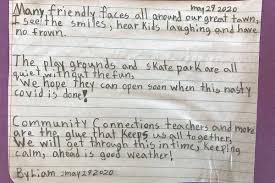 may 29 2020
Many friendly faces all around our great town,
I see the smiles, hear kids laughing and have
no frown.
The play grounds and skate park are all
quiet without the fun,
We hope they can open soon when this nasty
covid is done!
Community Connections teachers and more
are the glue that keeps us all together,
We will get through this in time, keeping
calm, ahead is good weather!
By Liam may 29 2020